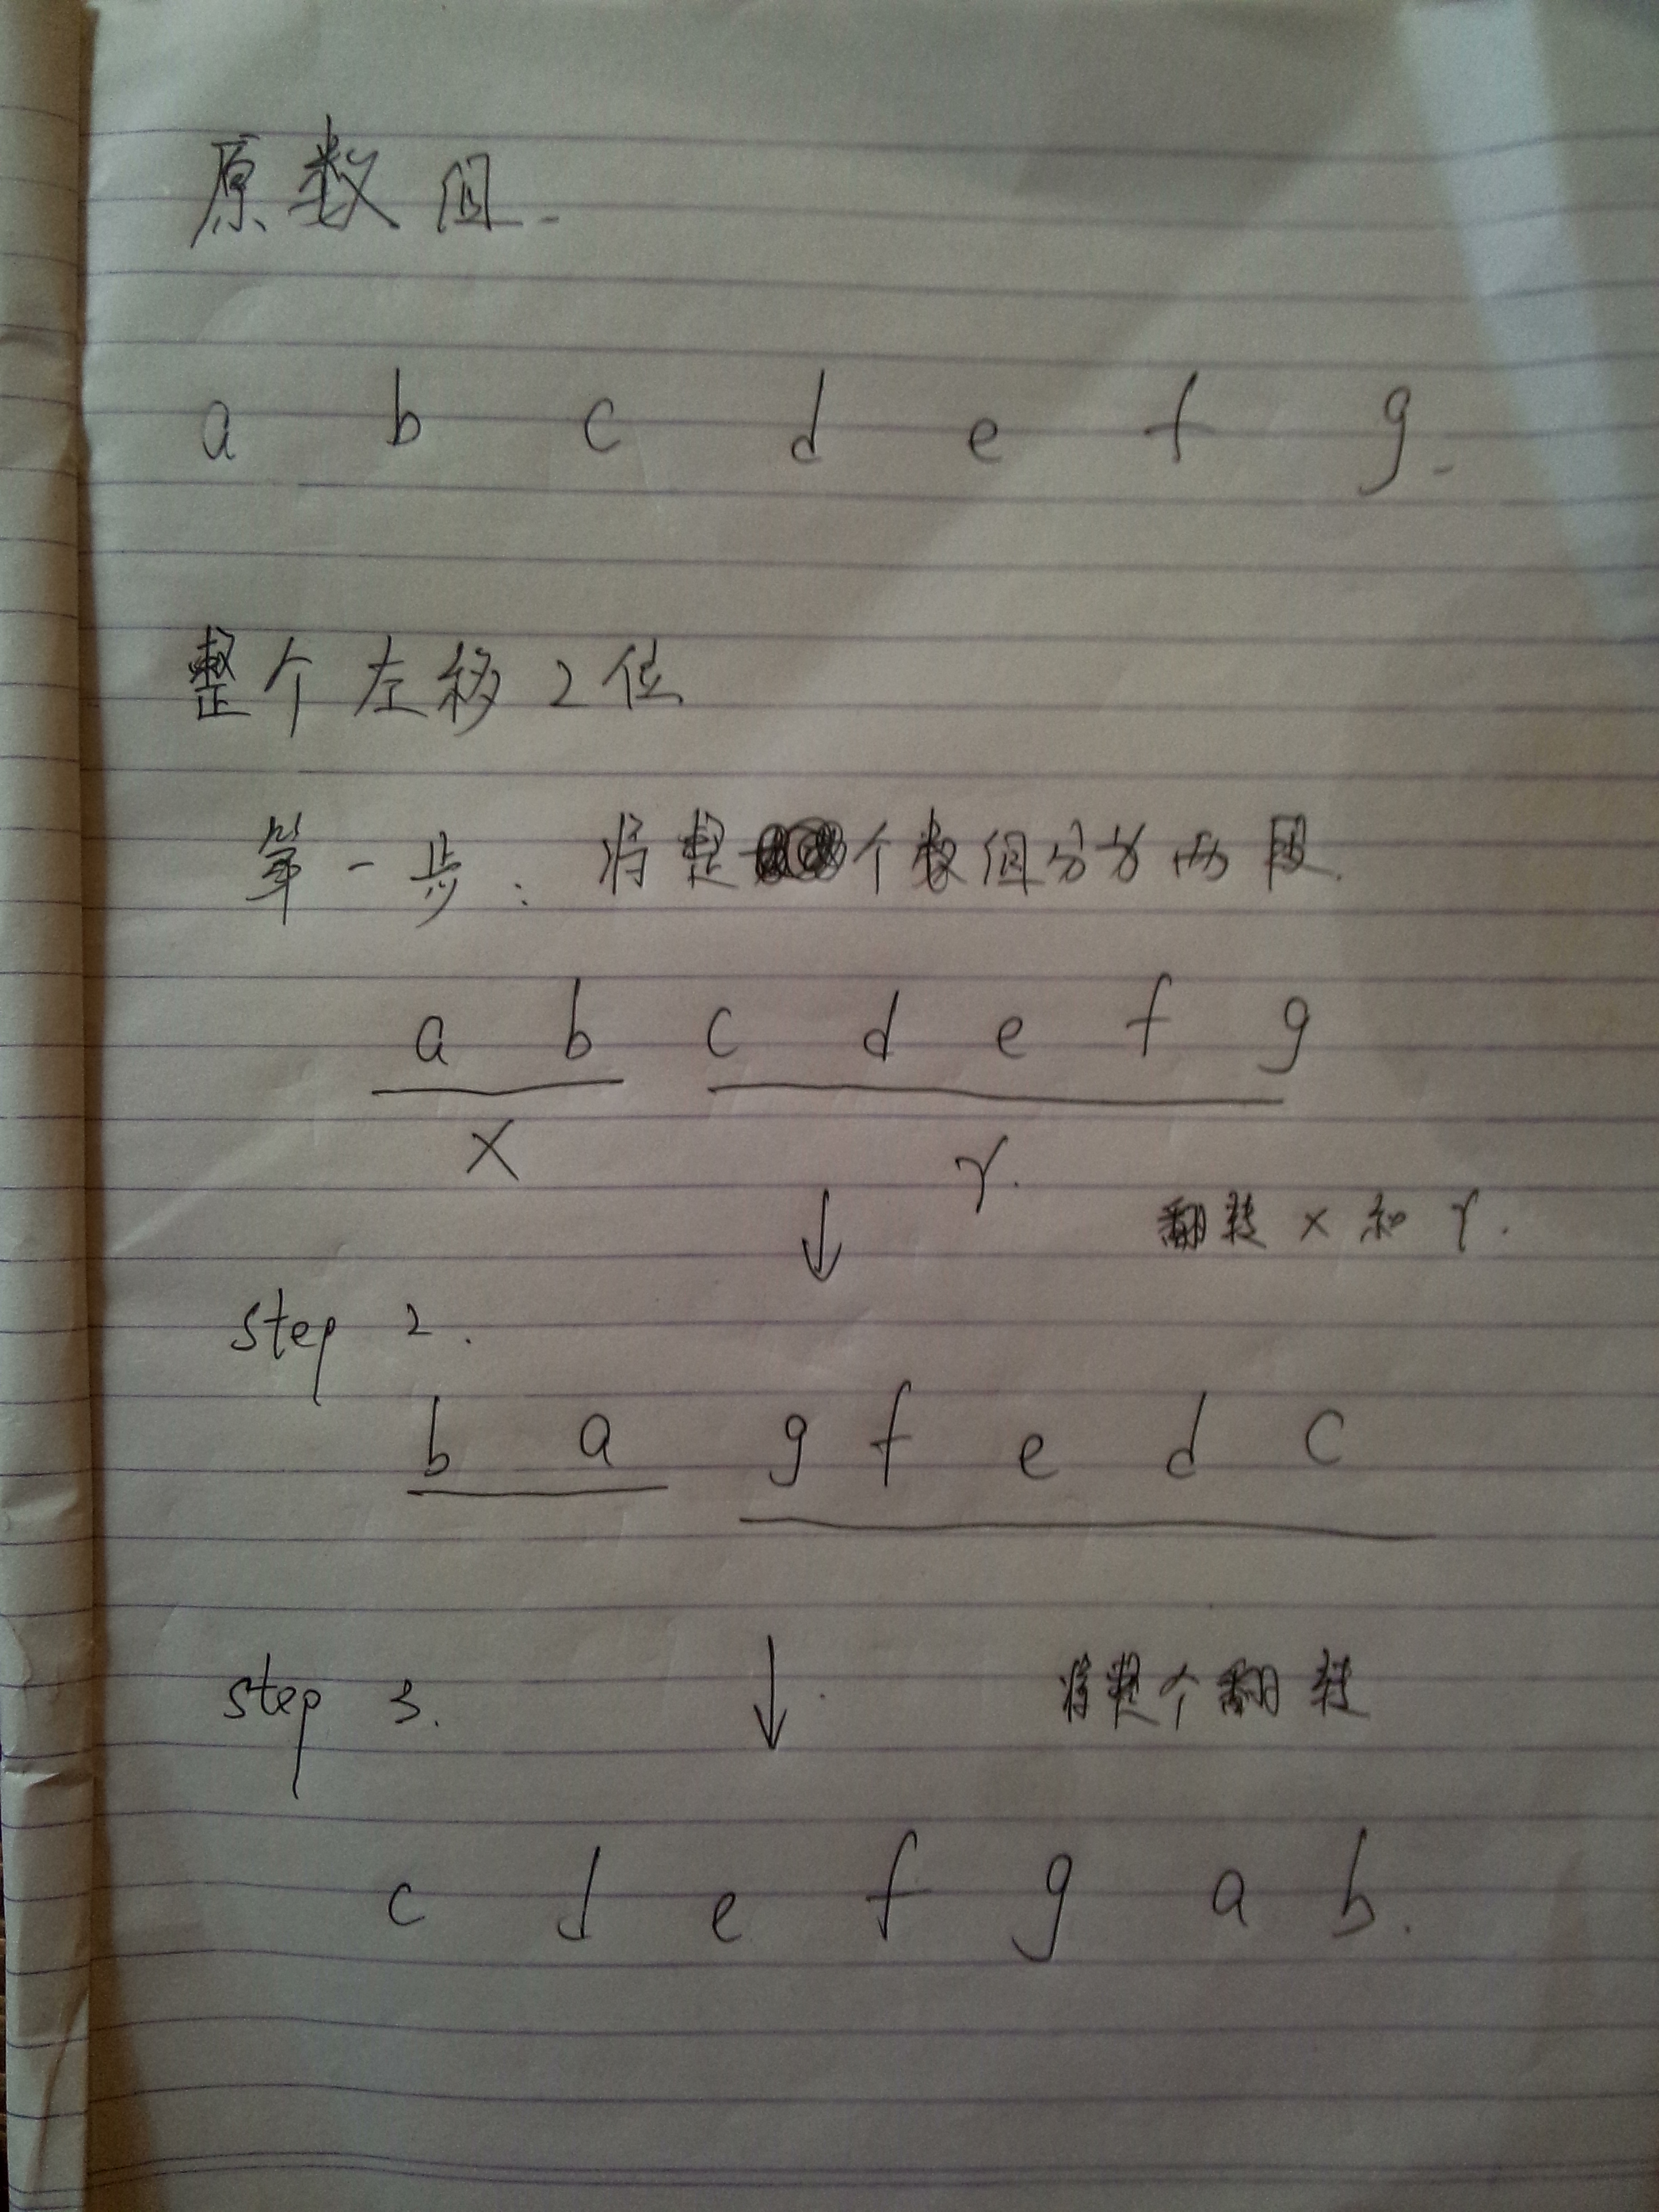 原数组.
a b c d e f g.
整个左移2位
第一步: 将整个数组分为两段.
a b c d e f g
X Y.
翻转 X 和 Y.
step 2.
b a g f e d c
step 3. 将整个翻转
c d e f g a b.